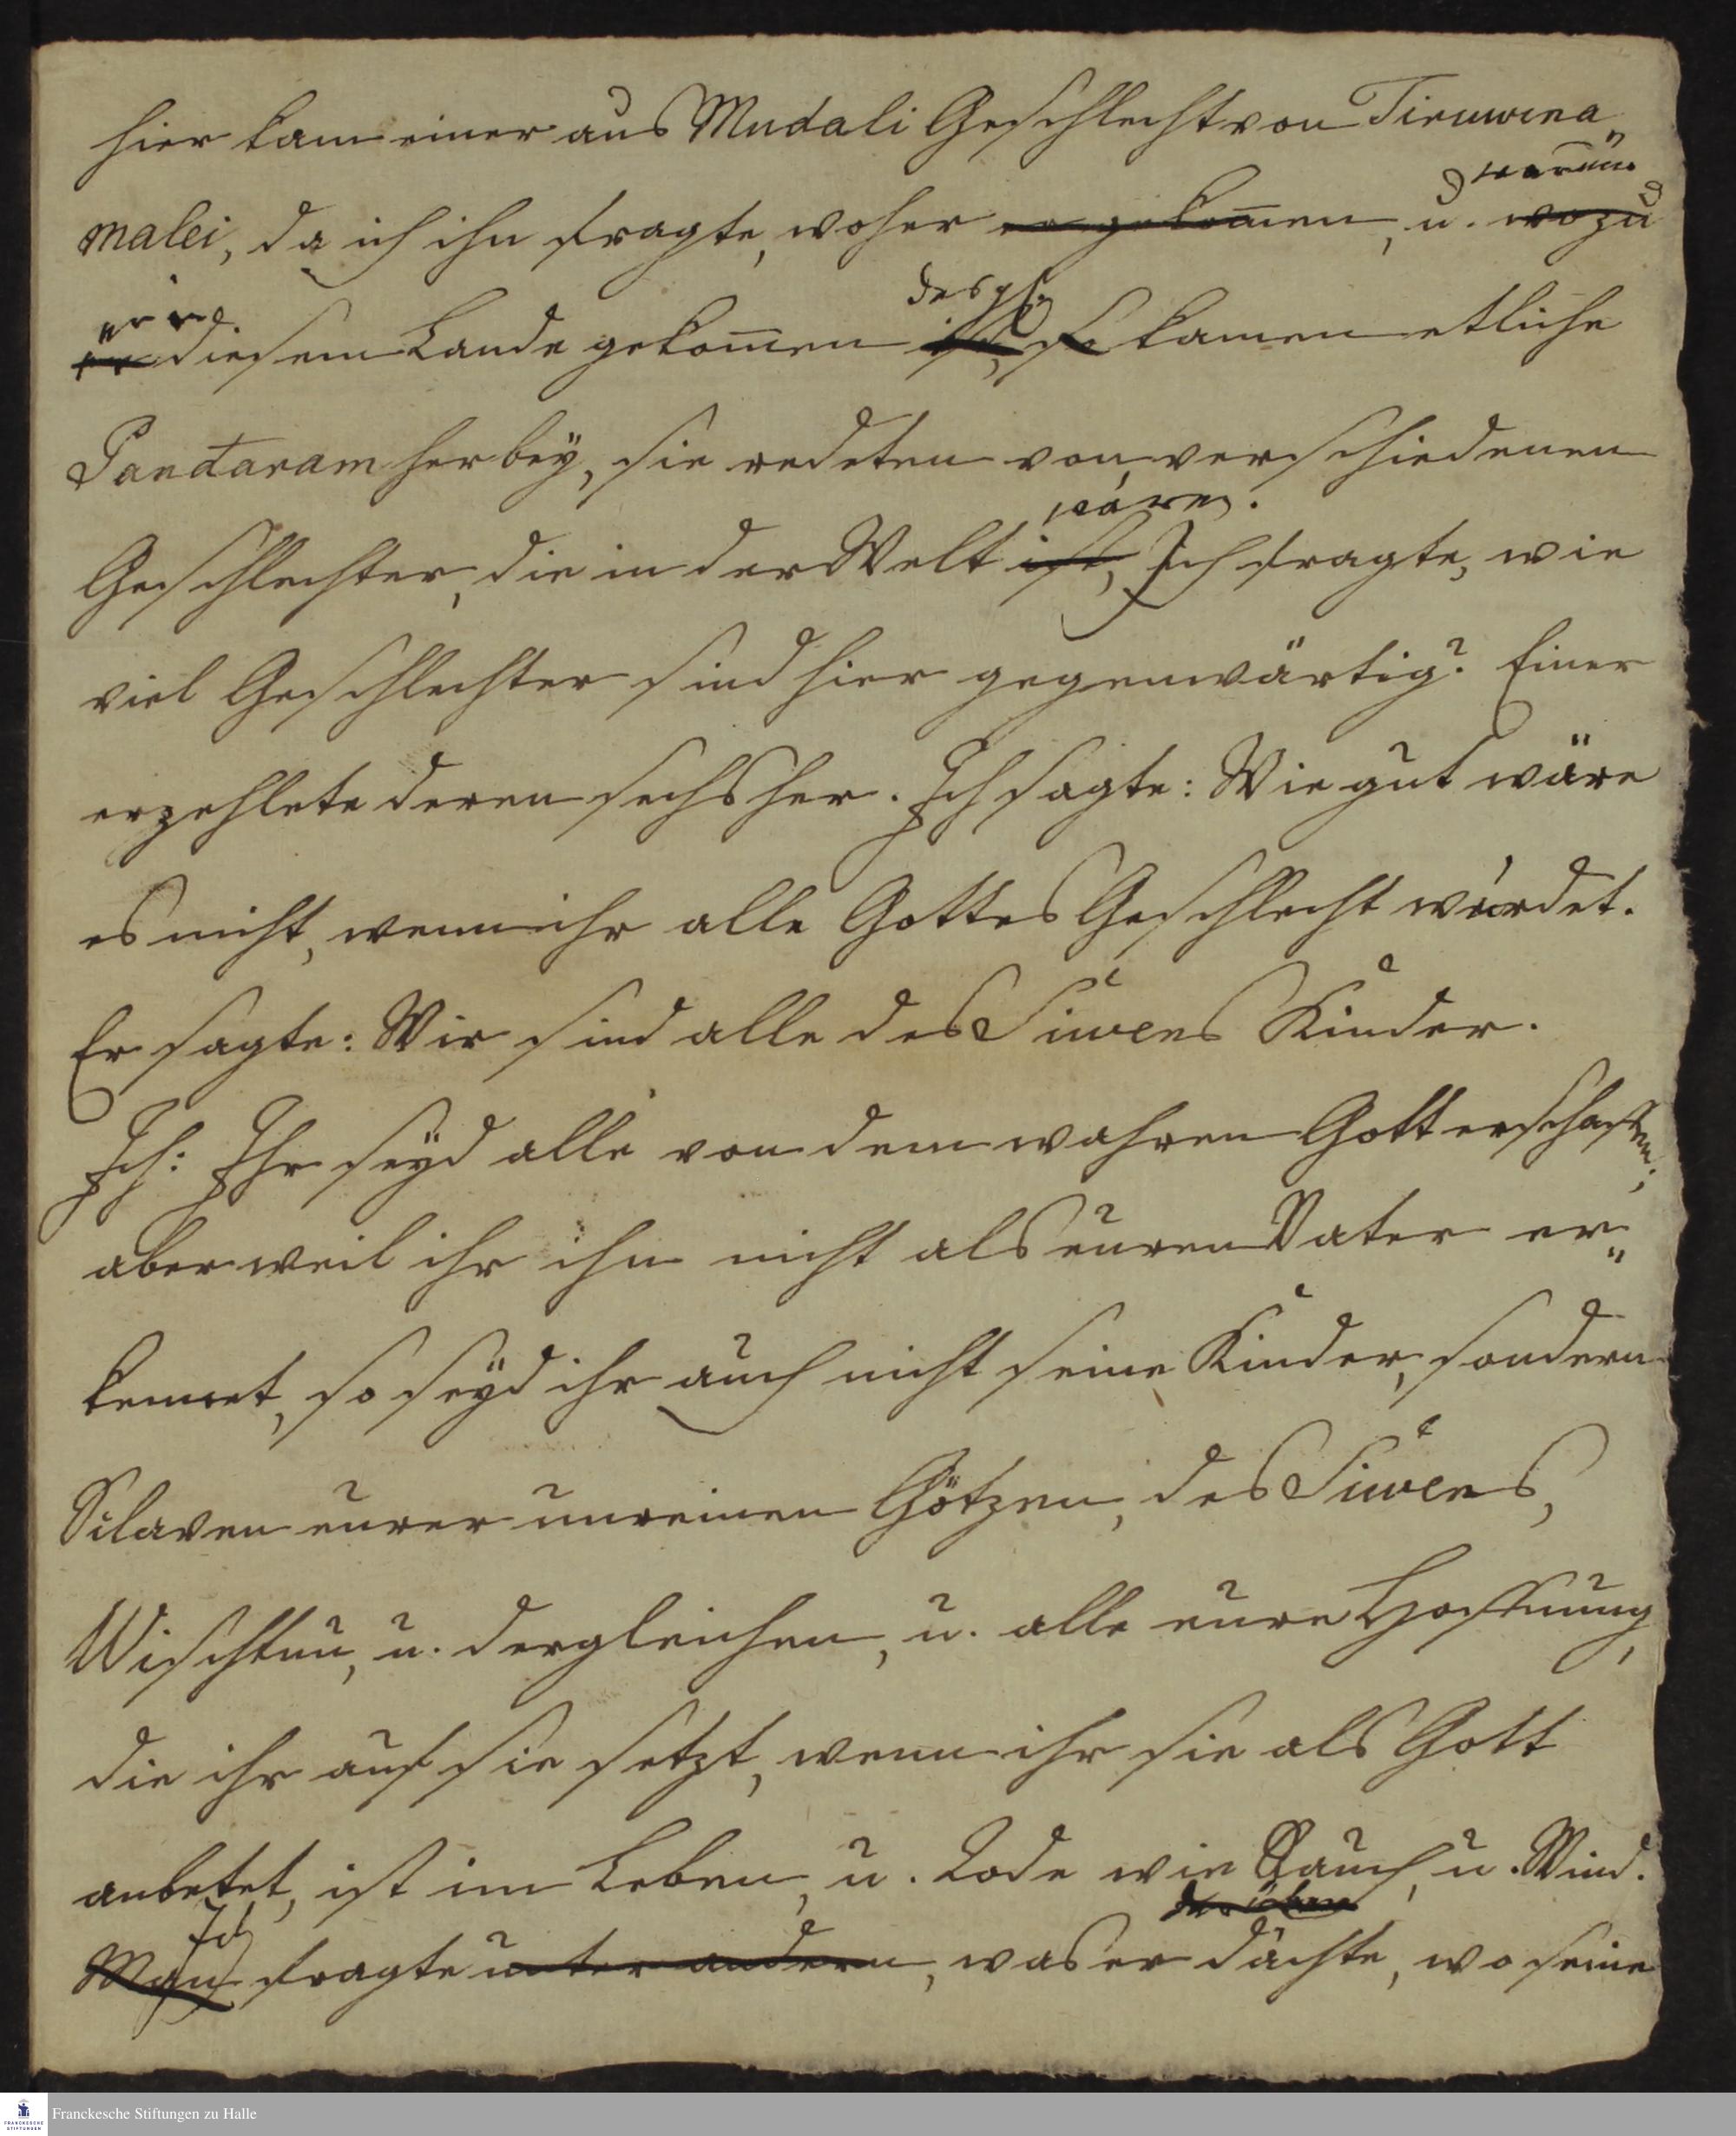 hier kam einer aus Mudali Geschlecht von Tiruwina„
warum
malei, da ich ihn fragte, woher er gekom̄en, u. wozu
er in
er diesem Lande gekom̄en ist, so kamen etliche
Pandaram herbey, sie redeten von verschiedenen
wären.
Geschlechter, die in der Welt ist, Ich fragte, wie
viel Geschlechter sind hier gegenwärtig? Einer
erzehlete deren sechs her. Ich sagte: Wie gut wäre
es nicht, wenn ihr alle Gottes Geschlecht würdet.
Er sagte: Wir sind alle des Siuwens Kinder.
Ich: Ihr seyd alle von dem wahren Gott erschaffen;
aber weil ihr ihn nicht als euren Vater er„
kennet, so seyd ihr auch nicht seine Kinder, sondern
Sclaven eurer unreinen Götzen, des Siuwens,
Wischtnu, u. dergleichen, u. alle eure Hoffnung,
die ihr auf sie setzt, wenn ihr sie als Gott
anbetet, ist im Leben, u. Tode wie Rauch, u. Wind.
Ich darüber
Man fragte unter andern, was er dächte, wo seine
Franckesche Stiftungen zu Halle